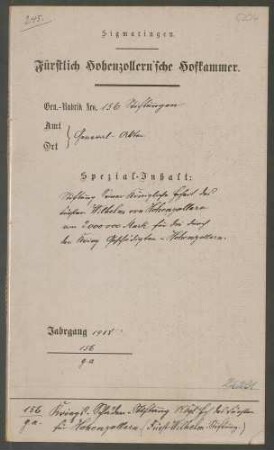 245.
Sigmaringen.
Fürstlich Hohenzollern'sche Hofkammer.
Gen.-Rubrik Nro. 136 Stiftungen
Amt
Ort } General-Akten
Spezial-Inhalt:
Stiftung Seiner Königliche Hoheit des
Fürsten Wilhelm von Hohenzollern
von 2000 000 Mark für den durch
den Krieg Geschädigten in Hohenzollern.
Jahrgang 1918
136
9a
136 Kriegs-Schäden-Stiftung Kgl. H. des Fürsten
9a. für Hohenzollern (Fürst-Wilhelm-Stiftung.)